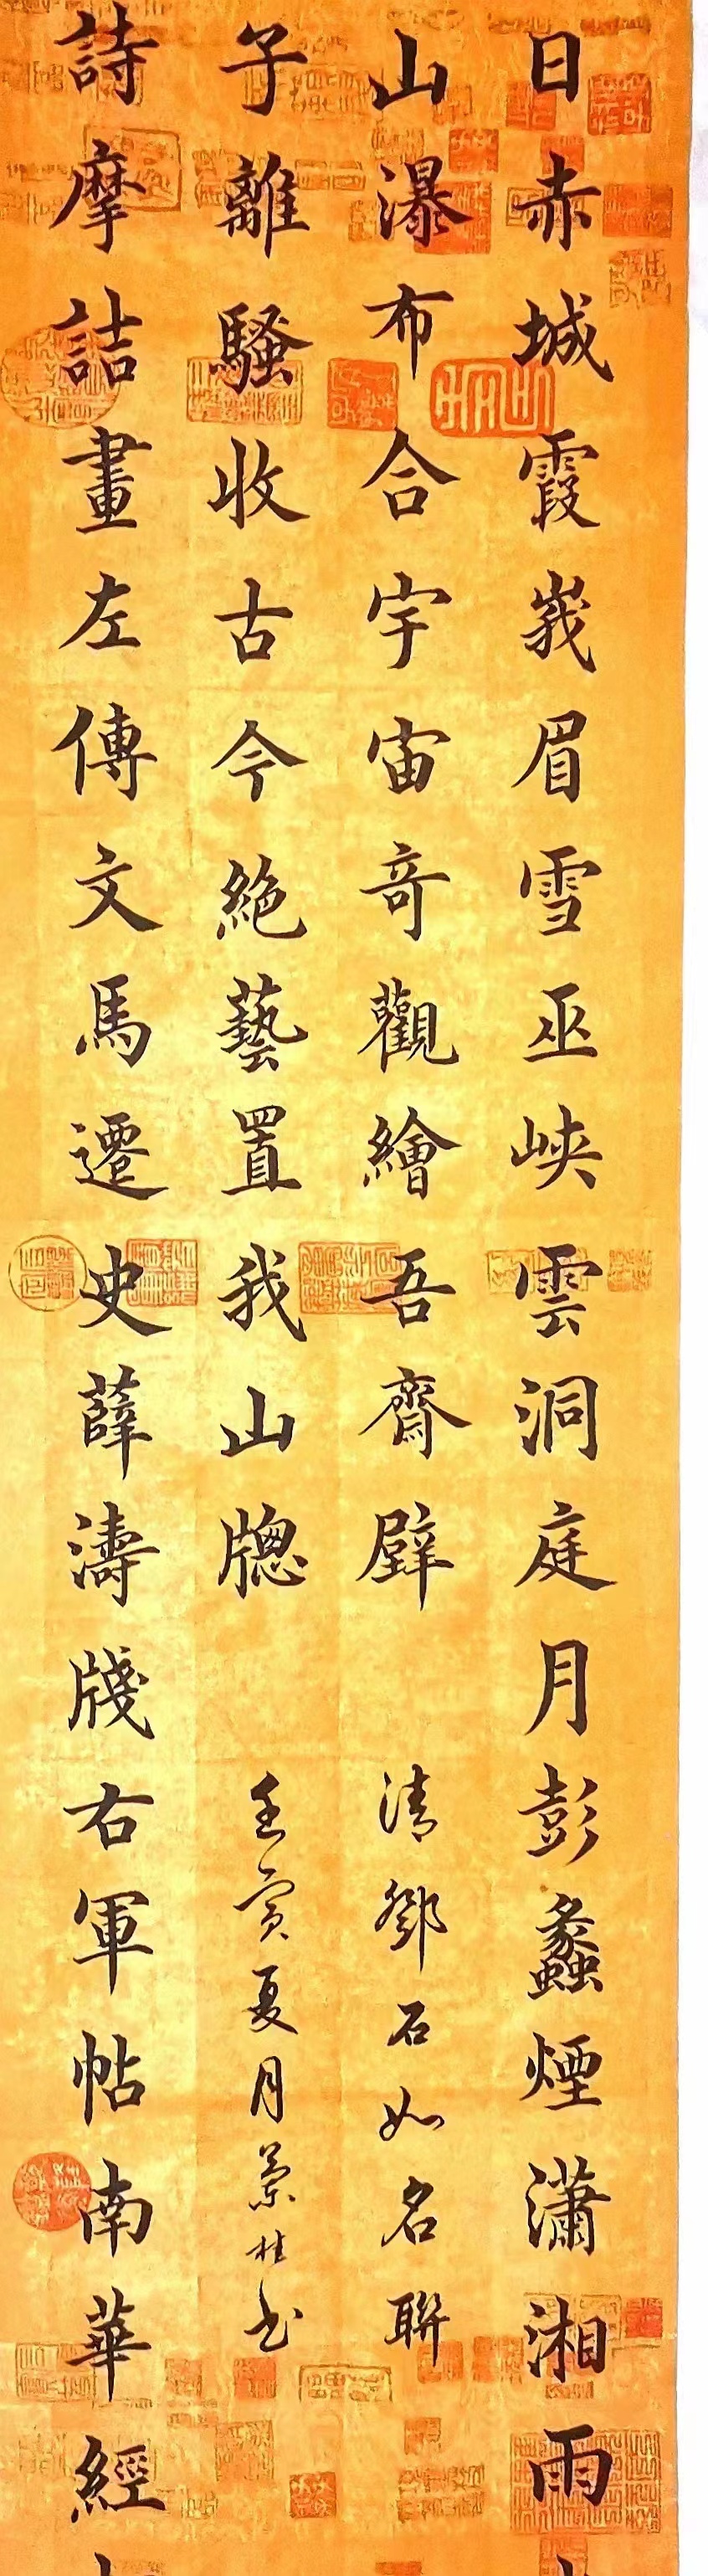 日赤城霞峩眉雪巫峽雲洞庭月彭蠡煙瀟湘雨
山瀑布合宇宙奇觀繪吾齋壁
清鄧石如名聯
子離騷收古今絕藝置我山牕
壬寅夏月
書
詩摩詰畫左傳文馬遷史薛濤牋右軍帖南華經